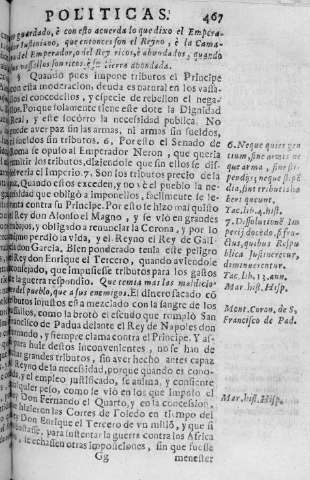 POLITICAS. 467
guardado, è con esto acuerda lo que dixo el Empera-
Justiniano, que entonces son el Reyno, è la Cama-
del Emperador, o del Rey ricos, è abundados, quando
vassallos son ricos, è su tierra abondada.
§ Quando pues impone tributos el Principe
con esta moderacion, deuda es natural en los vassa-
los concedellos, y especie de rebelion el nega-
Porque solamente tiene este dote la Dignidad
Real, y este socorro la necessidad publica. No
puede aver paz sin las armas, ni armas sin sueldos,
sueldos sin tributos. 6. Por esto el Senado de
se opuso al Emperador Neron, que queria
remitir los tributos, diziendole que sin ellos se dis-
el Imperio. 7. Son los tributos precio de la
Quando estos exceden, y no vè el pueblo la ne-
cessidad que obligò a imponellos, facilmente se le-
vanta contra su Principe. Por esto se hizo mal quisto
el Rey don Alonso el Magno, y se viò en grandes
y obligado a renunciar la Corona, y por lo
mismo perdiò la vida, y el Reyno el Rey de Gali-
cia don Garcia. Bien ponderado tenia este peligro
el Rey don Enrique el Tercero, quando aviendole
aconsejado, que impusiesse tributos para los gastos
de la guerra respondiò. Que temia mas las maldicio-
pueblo, que a sus enemigos. El dinero sacado cō
tributos injustos està mezclado con la sangre de los
vassallos, como la brotò el escudo que rompiò San
Francisco de Padua delante del Rey de Napoles don
y siempre clama contra el Principe. Y as-
para huir destos inconvenientes, no se han de
grandes tributos, sin aver hecho antes capaz
Reyno de la necessidad, porque quando es cono-
cida, y el empleo justificado, se anima, y consiente
qualquier peso, como se viò en los que impuso el
Rey Don Fernando el Quarto, y en la concession,
hizieron las Cortes de Toledo en tiempo del
Rey Don Enrique el Tercero de vn millō, y que si
para sustentar la guerra contra los Africa
se echassen otras imposiciones, sin que fuesse
Gg menester
6. Neque quies gen
tium, sine armis ne
que arma, sine sti-
pendijs; neque stipē
dia, sint tributis ha
beri queunt,
Tac. lib. 4. hist.
7. Dissolutionē Im
perij docedo, si fru-
ctus, quibus Respu
blica sustineretur,
diminuerentur.
Tac. lib. 13. ann.
Mar. hist. Hisp.
Mont. Coron. de S.
Francisco de Pad.
Mar. hist. Hisp.